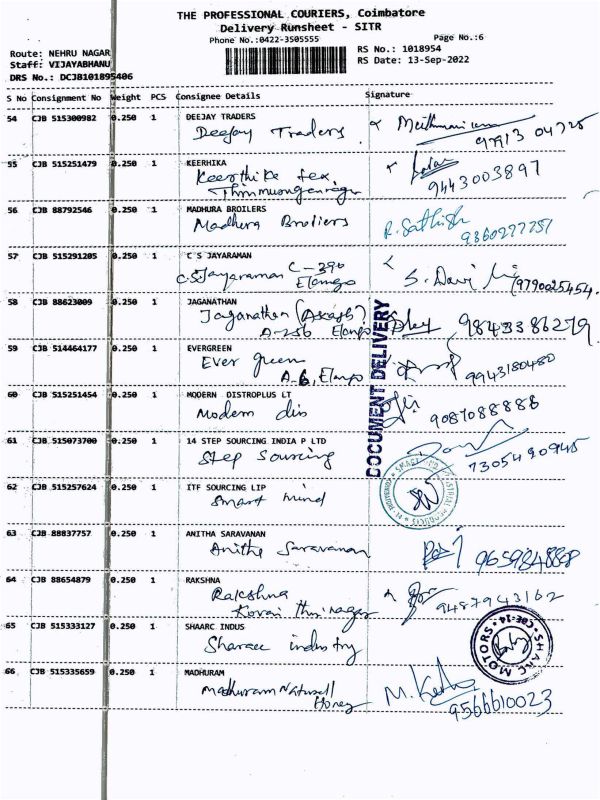 THE PROFESSIONAL COURIERS, Coimbatore
Delivery Runsheet - SITR
Phone No.:0422-3505555
Page No.:6
Route: NEHRU NAGAR
RS No.: 1018954
Staff: VIJAYABHANU
RS Date: 13-Sep-2022
DRS No.: DCJB101895406
S No Consignment No Weight PCS Consignee Details Signature
54 CJB 515300982 0.250 1 DEEJAY TRADERS
Deejay Traders
55 CJB 515251479 0.250 1 KEERHIKA
Keerthika tex,
9443003897
56 CJB 88792546 0.250 1 MADHURA BROILERS
Madhura Broliers R. Sathish
9360277251
57 CJB 515291205 0.250 1 C S JAYARAMAN
C.S. Jayaraman C-390
Elango 9790025454
58 CJB 88623009 0.250 1 JAGANATHAN
Jaganathan (Akash)
A-256 Elango 9843386279
59 CJB 514464177 0.250 1 EVERGREEN
Ever green
A-6, Elango 9943180480
60 CJB 515251454 0.250 1 MODERN DISTROPLUS LT
Modern dis 9087088888
DOCUMENT DELIVERY
61 CJB 515073700 0.250 1 14 STEP SOURCING INDIA P LTD
Step Sourcing 7305490945
62 CJB 515257624 0.250 1 ITF SOURCING LIP
Smart mind
63 CJB 88837757 0.250 1 ANITHA SARAVANAN
Anitha Saravanan
64 CJB 88654879 0.250 1 RAKSHNA
Rakshna
Kovai thirunagar 9487943162
65 CJB 515333127 0.250 1 SHAARC INDUS
Sharac industry
SHARC MOTORS CBE-14
66 CJB 515335659 0.250 1 MADHURAM
Madhuram Naturall
Honey
9566610023